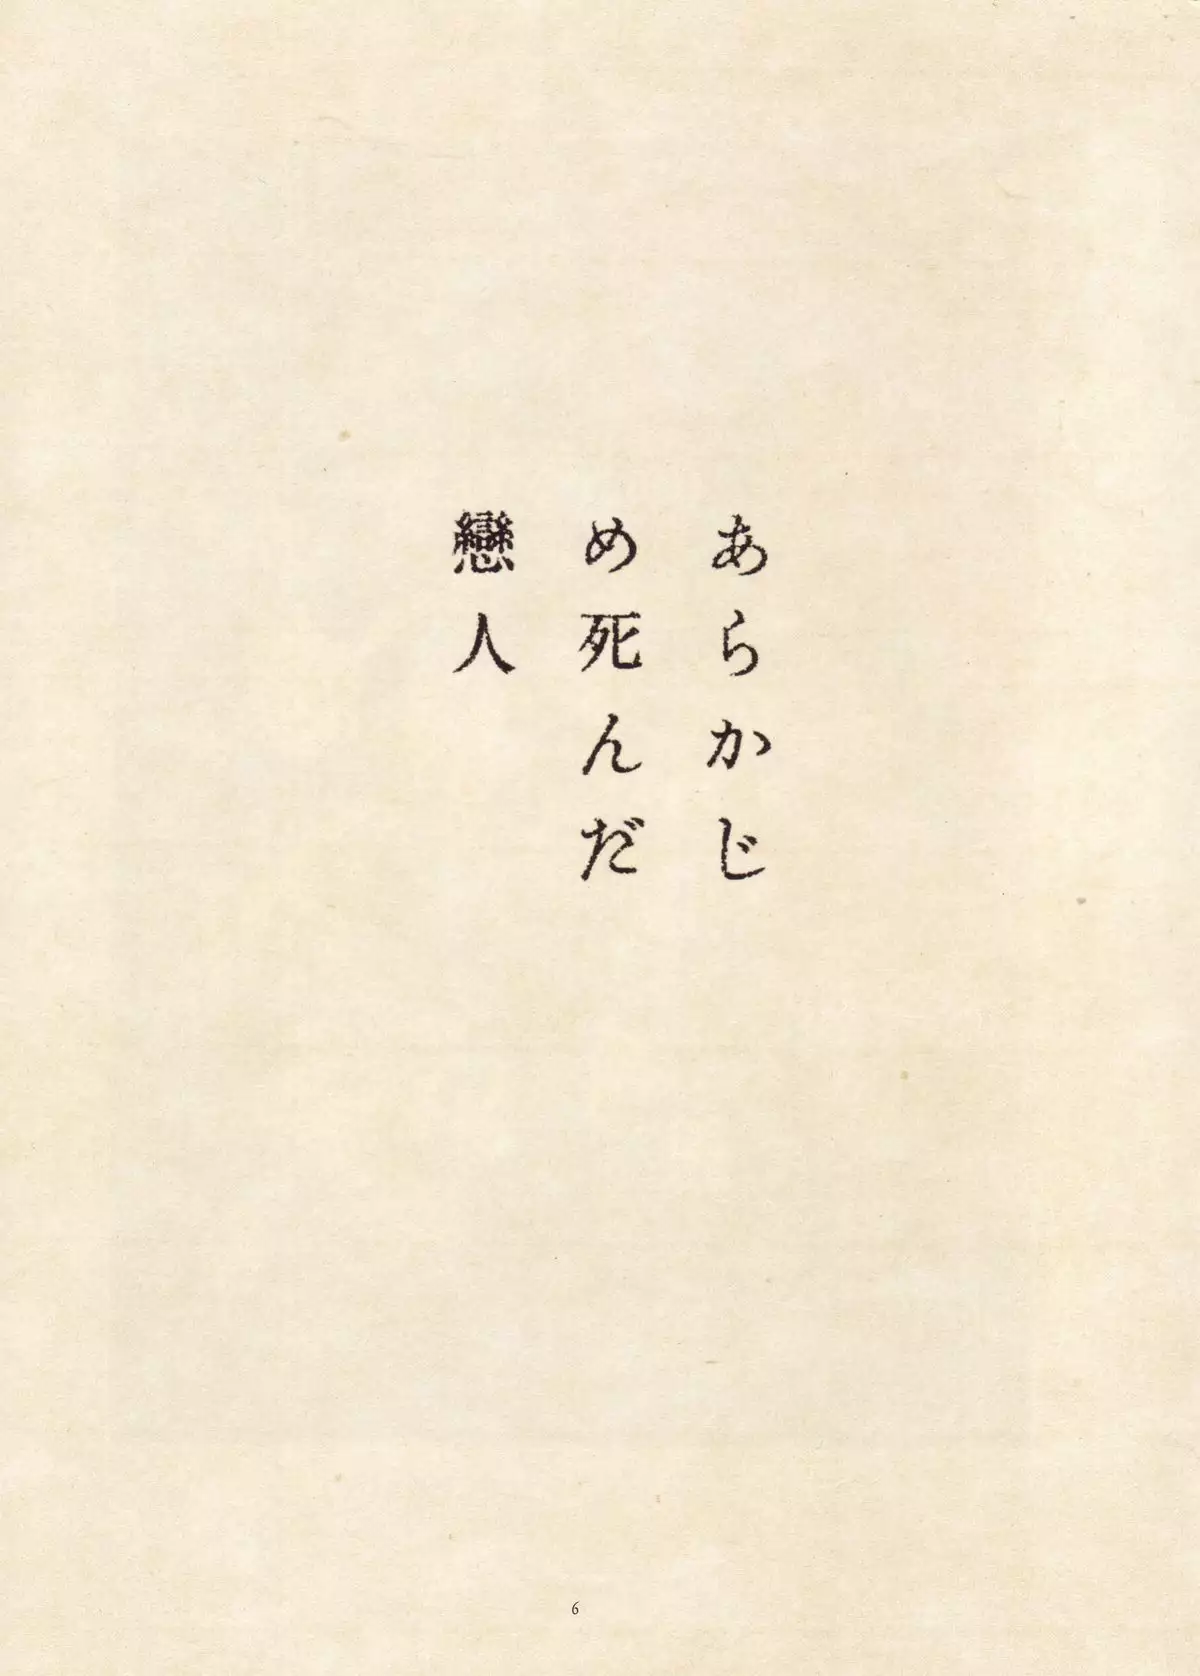 あらかじ
め死んだ
戀人
6